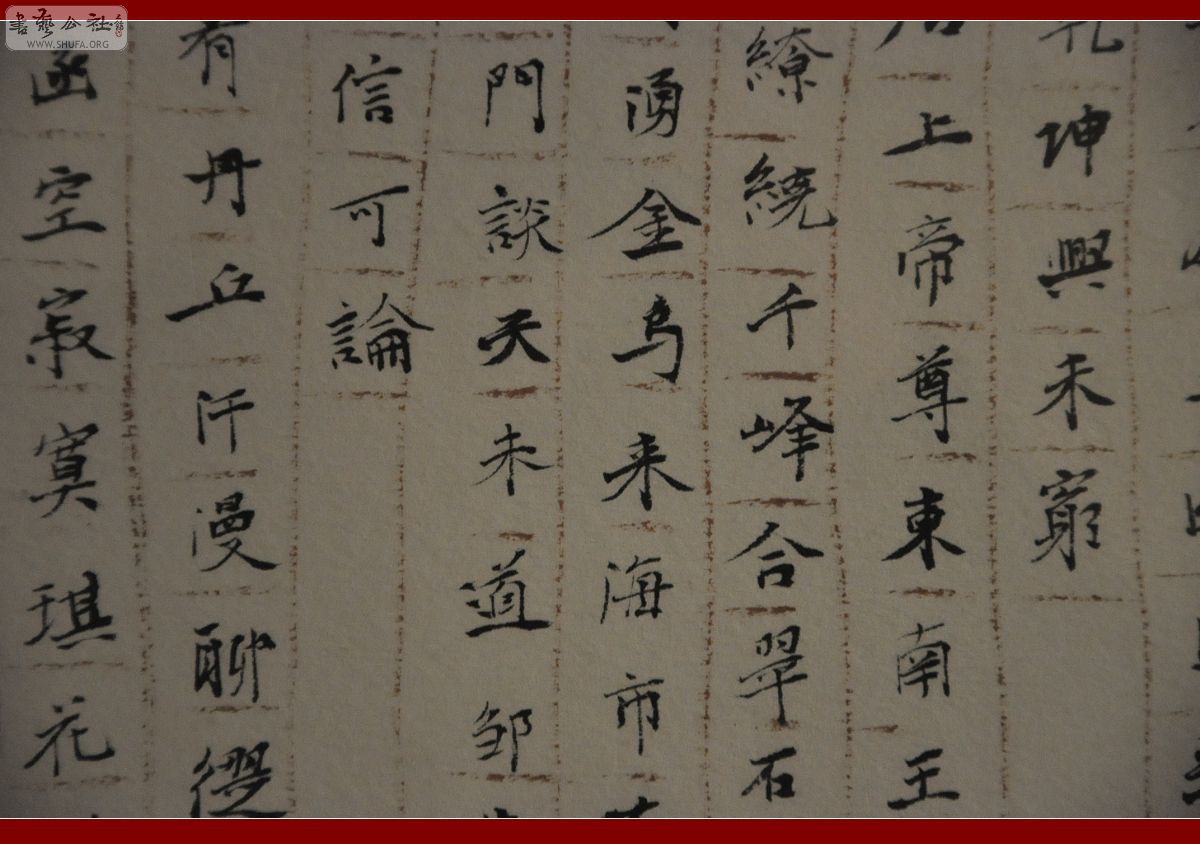 書藝公社
WWW.SHUFA.ORG
乾坤興未窮
上帝尊東南王
繚繞千峰合翠石
湧金烏来海市
門談天未道鄒
信可論
有丹丘汗漫聊
函空寂寞琪花